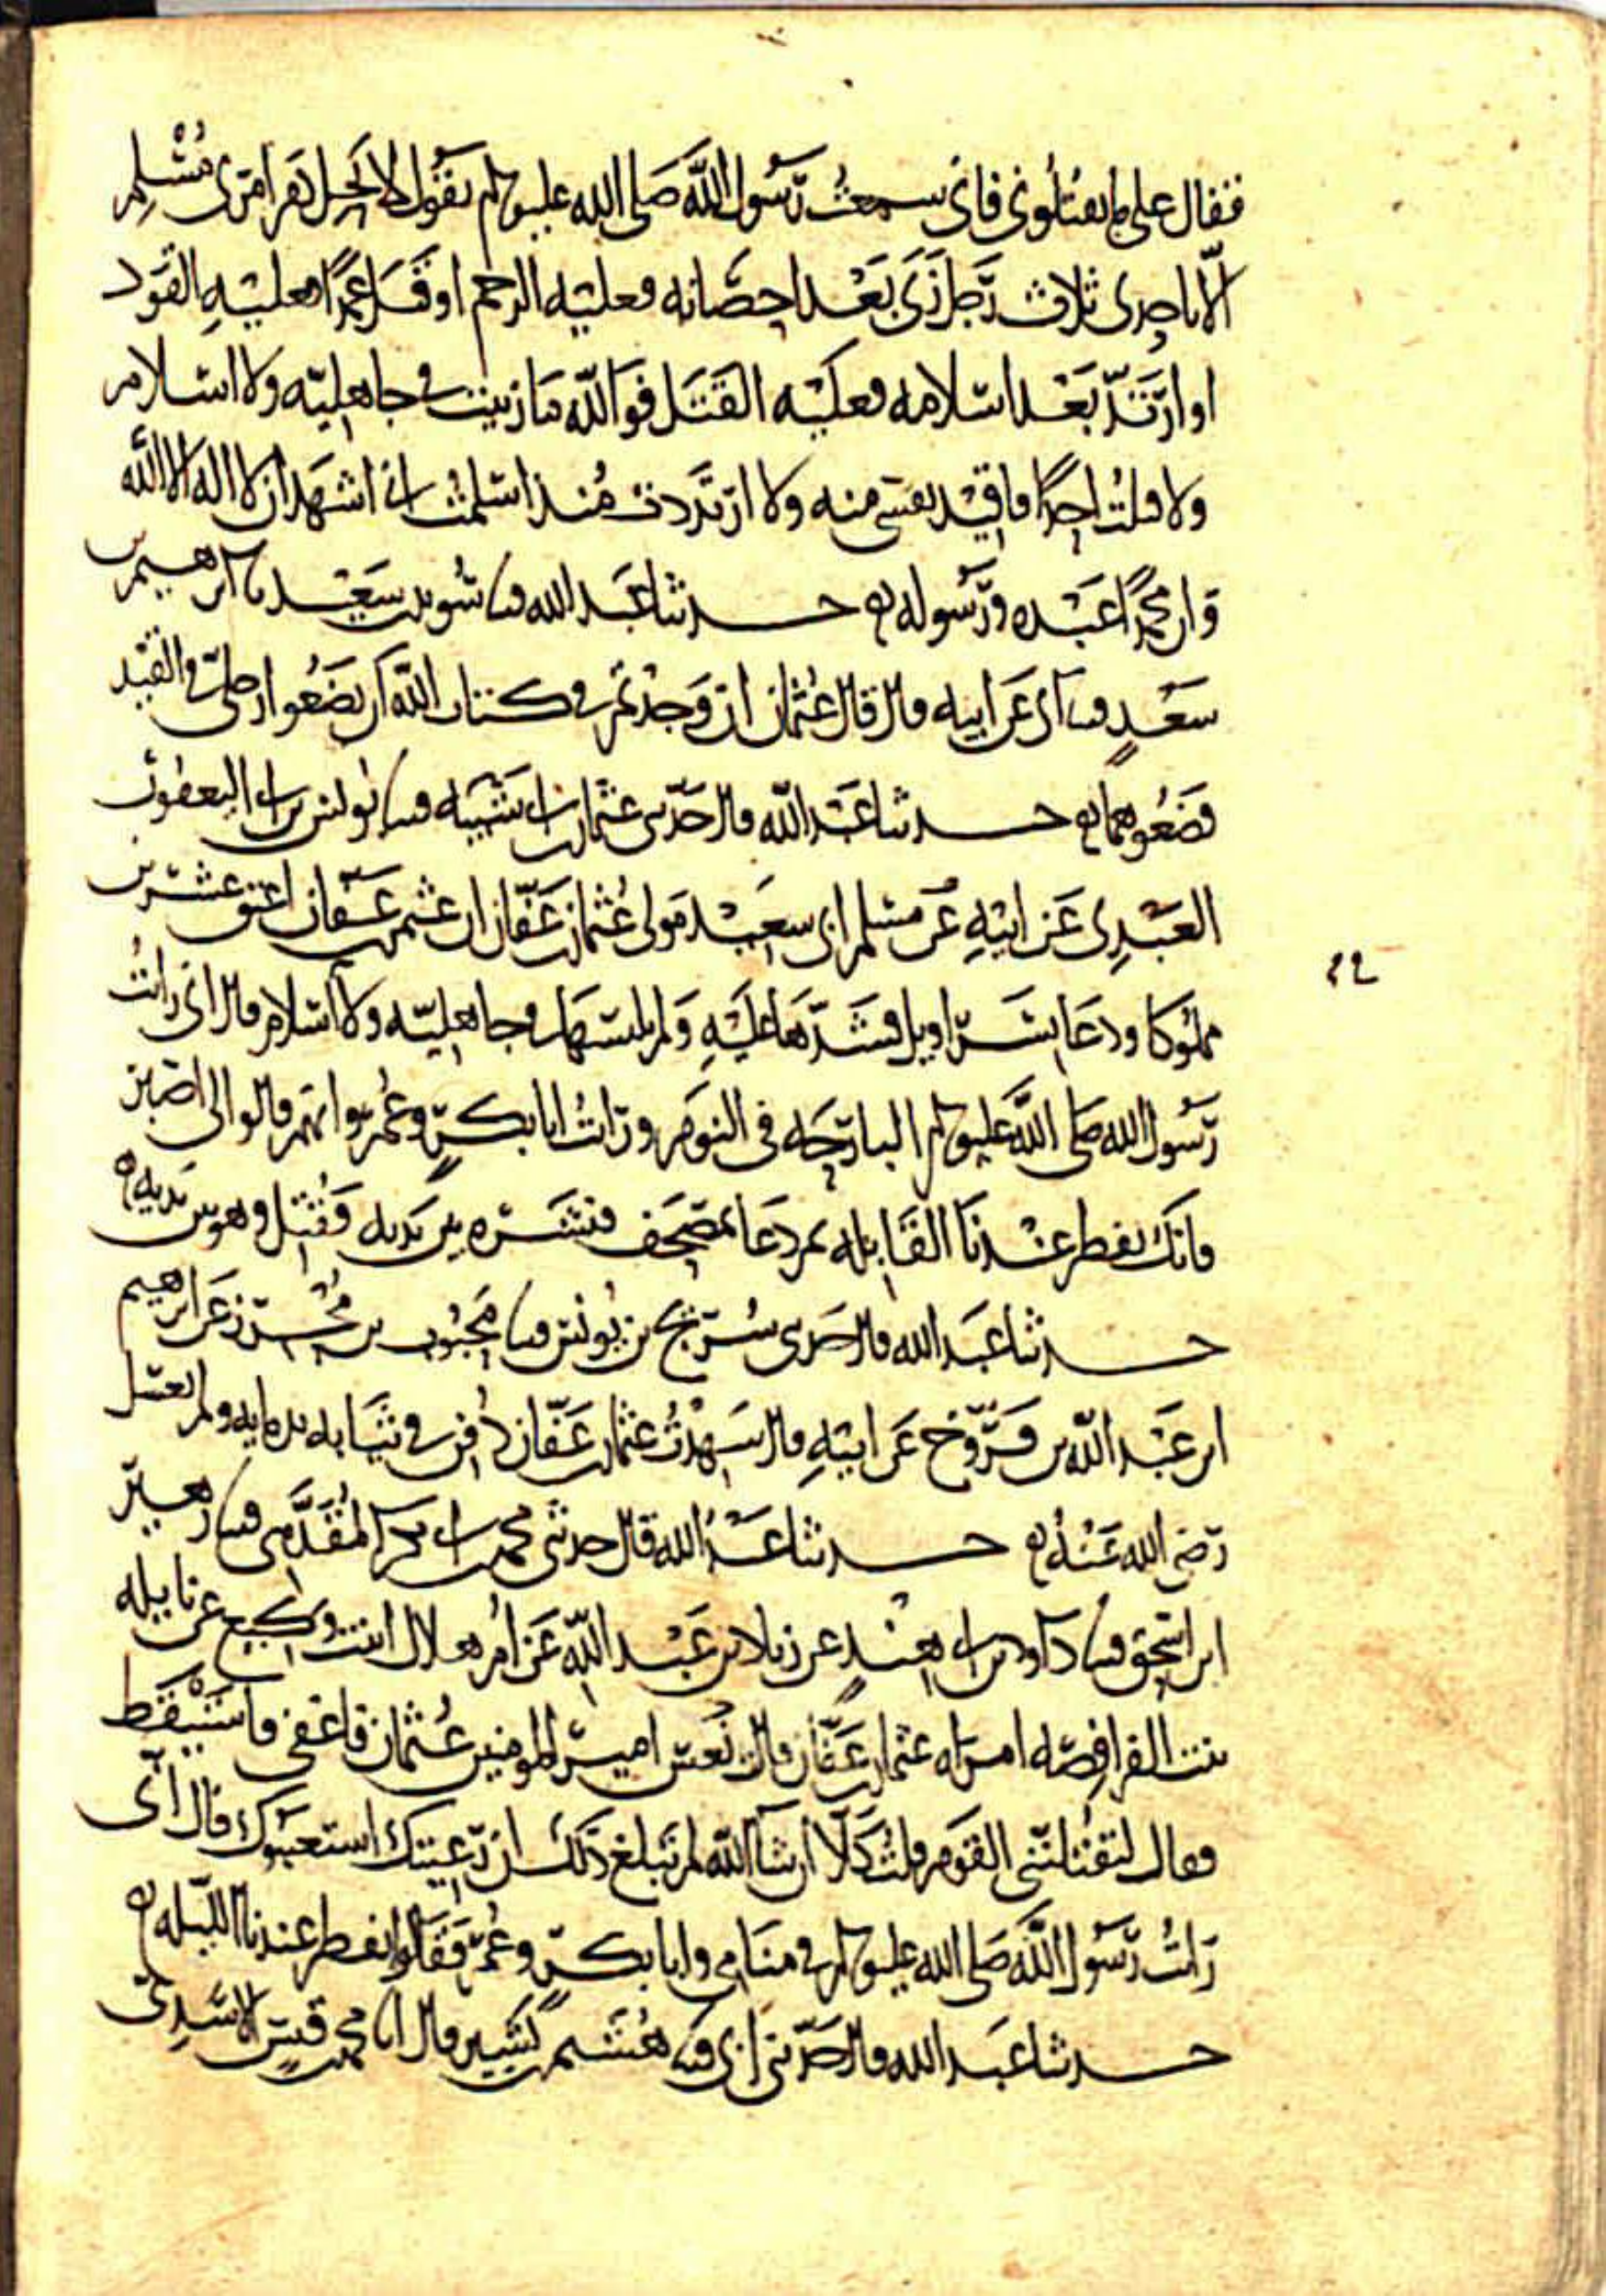 فقال علىٰ ما يقتلونى فانى سمعت رَسُول اللّه صَلى الله عليه وسلم يقول لا يحل دم امرئ مُسْلِم
الّا باحدى ثلاث رَجل زَنَى بَعْد احصَانه فعليه الرجم او قتل عمدًا فعليهِ القَود
او ارتَدّ بَعْد اسلامه فعليْه القَتل فوَاللّه مَا زنيت فى جاهليّه ولا اسلام
ولا قتلتُ احدًا فاقيْد نفسى منه ولا ارتَددت مُنذ اسلمتُ انى اشهَد ان لا اله الا الله
وان محمدًا عَبْده ورَسُوله حدثنا عَبد الله ثنا سُويد بن سَعيْد ثنا ابرهيم بن
سَعدٍ ثنا ابى عَن ابيه قال قال عُثمان ان وَجدْتم فى كتاب اللّه ان تضَعُوا رجلى فى القيْد
فضَعُوهما حدثنا عَبْد اللّه قال حَدّثنى عثمان بن ابى شَيْبَه ثنا يونس بن ابى اليعفور
العَبْدِى عَن ابيهِ عَن مسلم ابى سعَيْد مَولى عُثمان بن عَفّان ان عثمن بن عَفّان اعتق عشرين
مملوكا ودعَا بسَراويل فشَدّهَا عَليْهِ وَلم يلبسْهَا فى جاهليّه ولا اسلام قال انى رايتُ
رَسُول الله صَلى اللّه عليه وسلم البارحَه فى النوم ورَايتُ ابا بكرٍ وعُمر وانهم قالوا لى اصبر
فانك تفطر عنْدنَا القَابله ثم دعَا بمصحَف فنشَره بين يَديه فَقُتل وهو بين يَديه
حدثنا عَبَد الله قال حَدثنى سُريج بن يُونس ثنا مَحبُوب بن مُحرز عَن ابرهيم
ابن عَبْد اللّه بن فَرّوخ عَن ابيهِ قال شَهِدْتُ عثمان بن عَفّان دُفن فى ثيَابه بدمايه ولم يغسل
رَضى الله عَنْهُ حدثنا عَبْدُ الله قال حدثنى محمد بن ابى بكر المُقَدَّمى ثنا زهير
ابن اسحق ثنا داود بن ابى هِنْدٍ عن زياد بن عَبْد اللّه عَن ام هلال ابنت وكيع عن نايله
بنت الفرافصه امراه عثمان بن عَفّان قالت نعس امير المومنين عُثمان فاغفى فاستَيْقظ
فقال ليقتُلنّنى القوم قلت كَلّا ان شا اللّه لم تبلغ ذَلك ان رَعِيتك استعتبوك قال انى
رَايتُ رَسُول اللّه صَلى الله عليه وسلم فى منَامى وابا بكرٍ وعُمر فَقَالوا تفطر عندنا الليله
حدثنا عَبد الله قال حَدّثنى ابى ثنا هُشَيم بن بَشير قال انا محمد بن قيس الاسدى